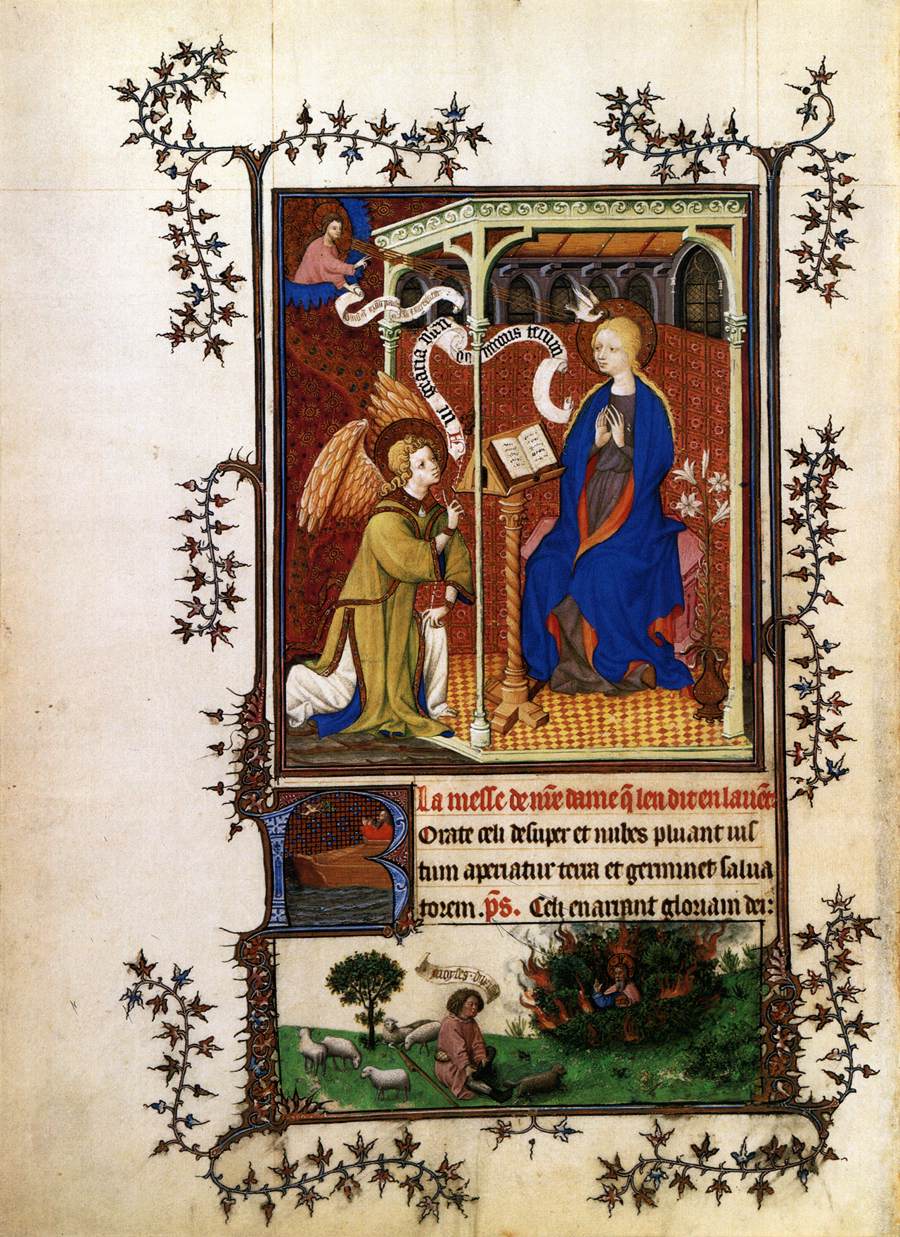 gracia
tecum
La messe de nr̄e dame q̄ len dit en lauēt
Rorate celi desuper et nubes pluant ius
tum aperiatur terra et germinet salua
torem. p̄s. Celi enarrant gloriam dei:
moyses